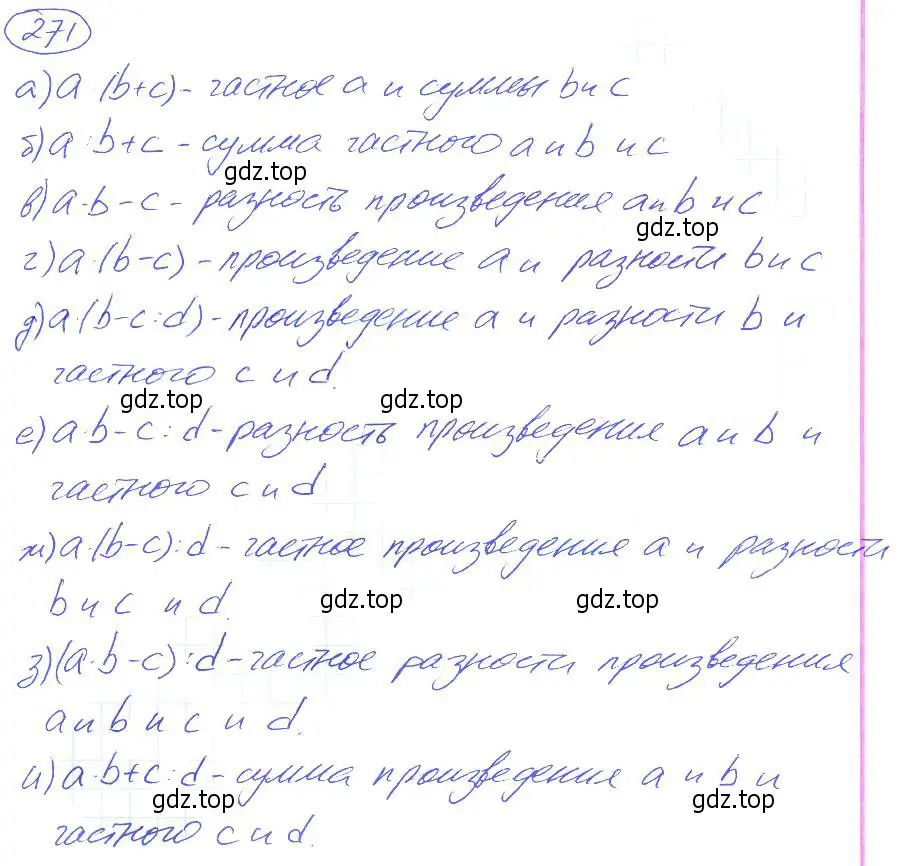 271
а) a (b+c) - частное a и суммы b и c
б) a : b + c - сумма частного a и b и c
gdz.top
в) a·b - c - разность произведения a и b и c
gdz.top
г) a·(b-c) - произведение a и разности b и c
д) a·(b-c:d) - произведение a и разности b и
частного c и d.
gdz.top gdz.top
е) a·b - c : d - разность произведения a и b и
частного c и d
ж) a·(b-c):d - частное произведения a и разности
b и c и d.
gdz.top gdz.top
з) (a·b-c):d - частное разности произведения
a и b и c и d.
и) a·b+c:d - сумма произведения a и b и
gdz.top gdz.top
частного c и d.